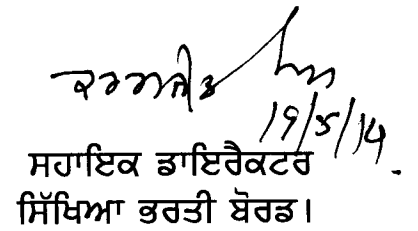 19/5/14
ਸਹਾਇਕ ਡਾਇਰੈਕਟਰ
ਸਿੱਖਿਆ ਭਰਤੀ ਬੋਰਡ।